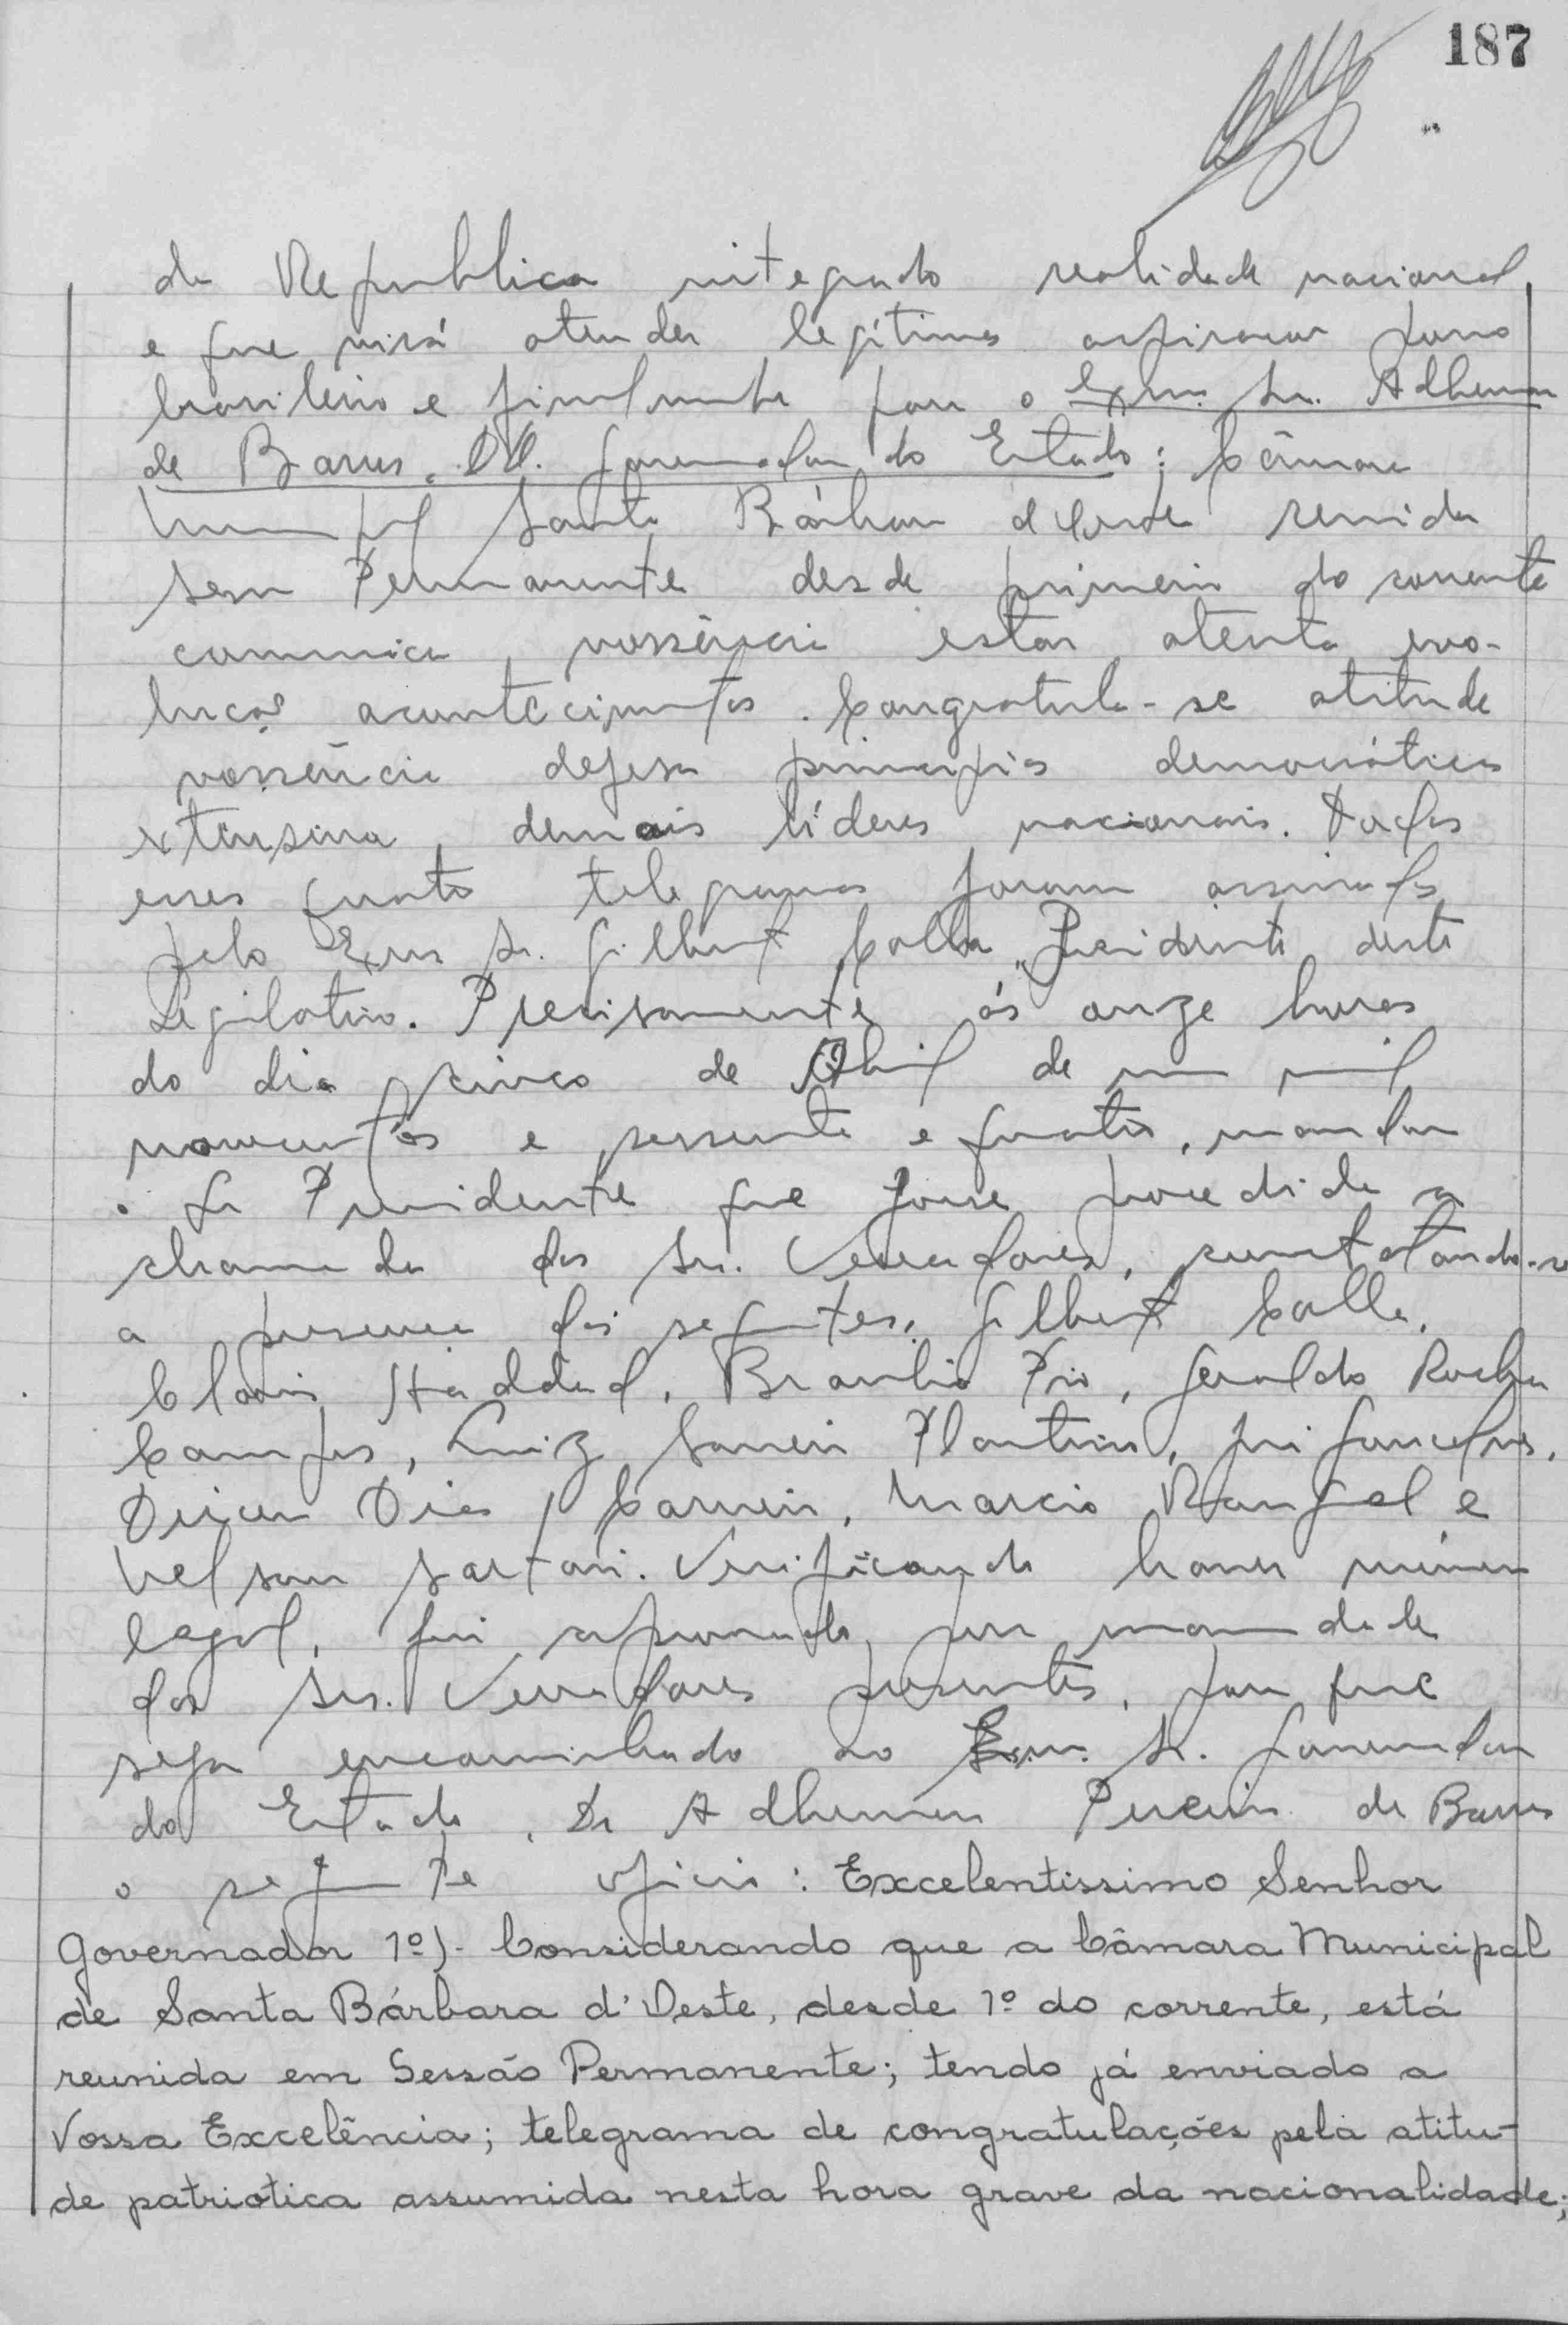 187
da Republica integrado realidade nacional
e que virá atender legítimas aspiracoes povo
brasileiro e finalmente para o Exmo. Sr. Adhemar
de Barros, DD. Governador do Estado: Câmara
Municipal Santa Bárbara d'Oeste reunida
Permanente desde primeiro do corrente
comunica vossência estar atenta evo-
lução acontecimentos. Congratula-se atitude
vossência defesa principios democráticos
extensiva demais líderes nacionais. Todos
esses quatro telegramas foram assinados
pelo Exmo Sr. Gilbert Calla, Presidente deste
Legislativo. Precisamente ás onze horas
do dia cinco de Abril de um mil
novecentos e sessenta e quatro, mandou
o Sr Presidente que fosse procedida a
chamada dos Srs. Vereadores, constatando-se
a presença dos seguintes: Gilbert Calla,
Clovis Haddad, Braulio Pio, Geraldo Rocha
Campos, Luiz Plantino,
Dirceu Dias Carneiro, Marcio Rangel e
Nelson Sartori. Verificando haver número
legal, foi aprovado por unanimidade
dos Srs. Vereadores presentes, para que
seja encaminhado ao Exmo. Sr. Governador
do Estado, Dr Adhemar Pereira de Barros
o seguinte oficio: Excelentissimo Senhor
Governador 1º)- Considerando que a Câmara Municipal
de Santa Bárbara d'Oeste, desde 1º do corrente, está
reunida em Sessão Permanente; tendo já enviado a
Vossa Excelência; telegrama de congratulações pela atitu-
de patriotica assumida nesta hora grave da nacionalidade;